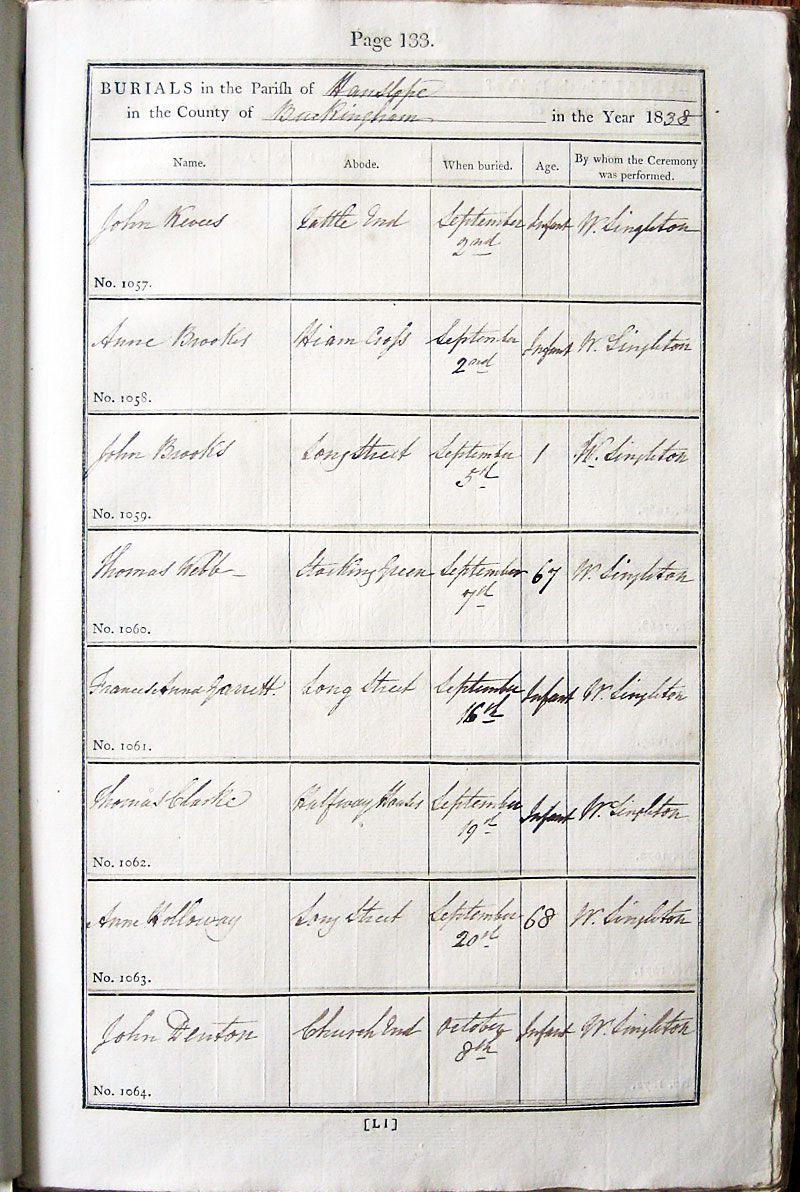 Page 133.
BURIALS in the Parish of Hanslope
in the County of Buckingham in the Year 1838
Name. Abode. When buried. Age. By whom the Ceremony was performed.
John Reeves Tattle End September 2nd Infant W. Singleton
No. 1057.
Anne Brookes Hiam Cross September 2nd Infant W. Singleton
No. 1058.
John Brooks Long Street September 5th 1 W. Singleton
No. 1059.
Thomas Webb Stocking Green September 7th 67 W. Singleton
No. 1060.
Frances Anna Garrett Long Street September 16th Infant W. Singleton
No. 1061.
Thomas Clarke Halfway House September 19th Infant W. Singleton
No. 1062.
Anne Holloway Long Street September 20th 68 W. Singleton
No. 1063.
John Denton Church End October 8th Infant W. Singleton
No. 1064.
[L1]